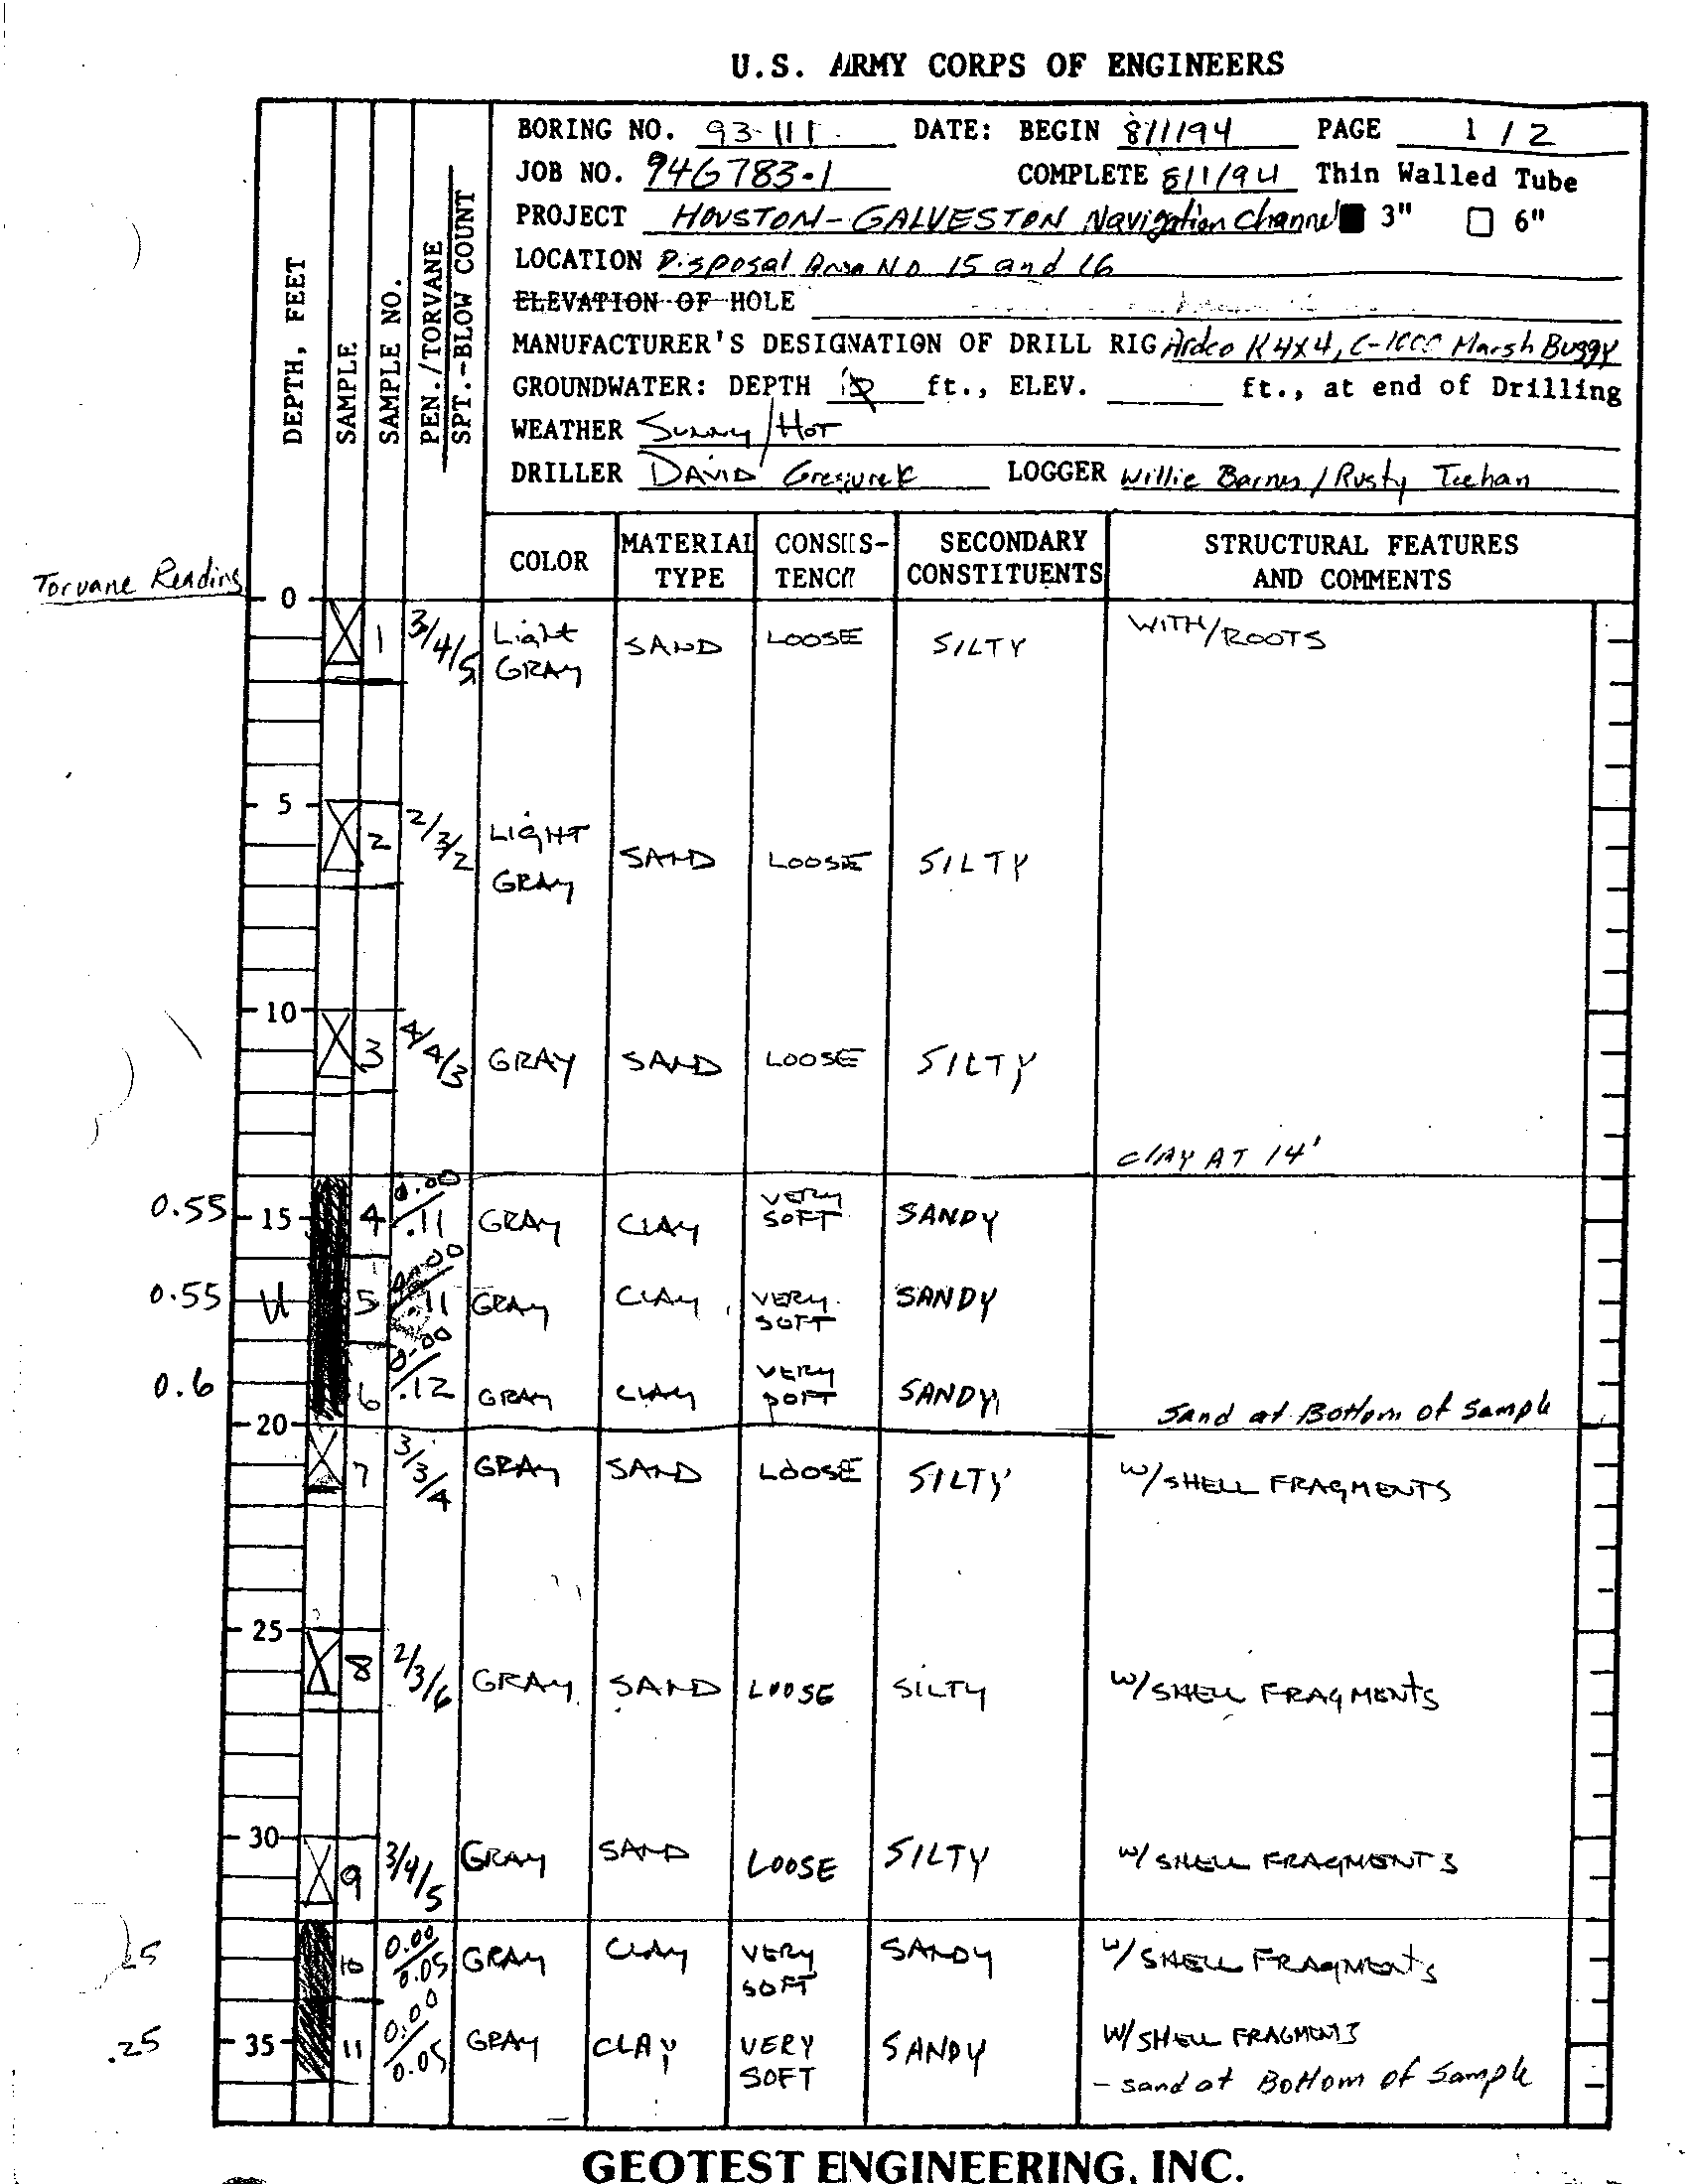 U.S. ARMY CORPS OF ENGINEERS
BORING NO. 93-111 DATE: BEGIN 8/1/94 PAGE 1 / 2
JOB NO. 94G783-1 COMPLETE 8/1/94 Thin Walled Tube
PROJECT HOUSTON-GALVESTON Navigation Channel 3" 6"
LOCATION Disposal Area No 15 and 16
ELEVATION OF HOLE
MANUFACTURER'S DESIGNATION OF DRILL RIG Ardco K4x4, Marsh Buggy
GROUNDWATER: DEPTH ft., ELEV. ft., at end of Drilling
WEATHER Sunny/HOT
DRILLER DAVID LOGGER Willie Barnes / Rusty Teehan
DEPTH, FEET
SAMPLE
SAMPLE NO.
PEN./TORVANE
SPT.-BLOW COUNT
COLOR MATERIAL TYPE CONSIS-TENCY SECONDARY CONSTITUENTS STRUCTURAL FEATURES AND COMMENTS
Torvane Reading
0
1 3/4/5 Light GRAY SAND LOOSE SILTY WITH/ROOTS
5
2 2/3/2 LIGHT GRAY SAND LOOSE SILTY
10
3 4/4/3 GRAY SAND LOOSE SILTY
CLAY AT 14'
0.55 15 4 0.00/.11 GRAY CLAY VERY SOFT SANDY
0.55 5 .11 GRAY CLAY VERY SOFT SANDY
0.6 6 0.00/.12 GRAY CLAY VERY SOFT SANDY
Sand at Bottom of Sample
20
7 3/3/4 GRAY SAND LOOSE SILTY W/SHELL FRAGMENTS
25
8 2/3/6 GRAY SAND LOOSE SILTY W/SHELL FRAGMENTS
30
9 3/4/5 GRAY SAND LOOSE SILTY W/SHELL FRAGMENTS
10 0.00/0.05 GRAY CLAY VERY SOFT SANDY W/SHELL FRAGMENTS
.25 35 11 0.00/0.05 GRAY CLAY VERY SOFT SANDY W/SHELL FRAGMENTS
- sand at Bottom of Sample
GEOTEST ENGINEERING, INC.